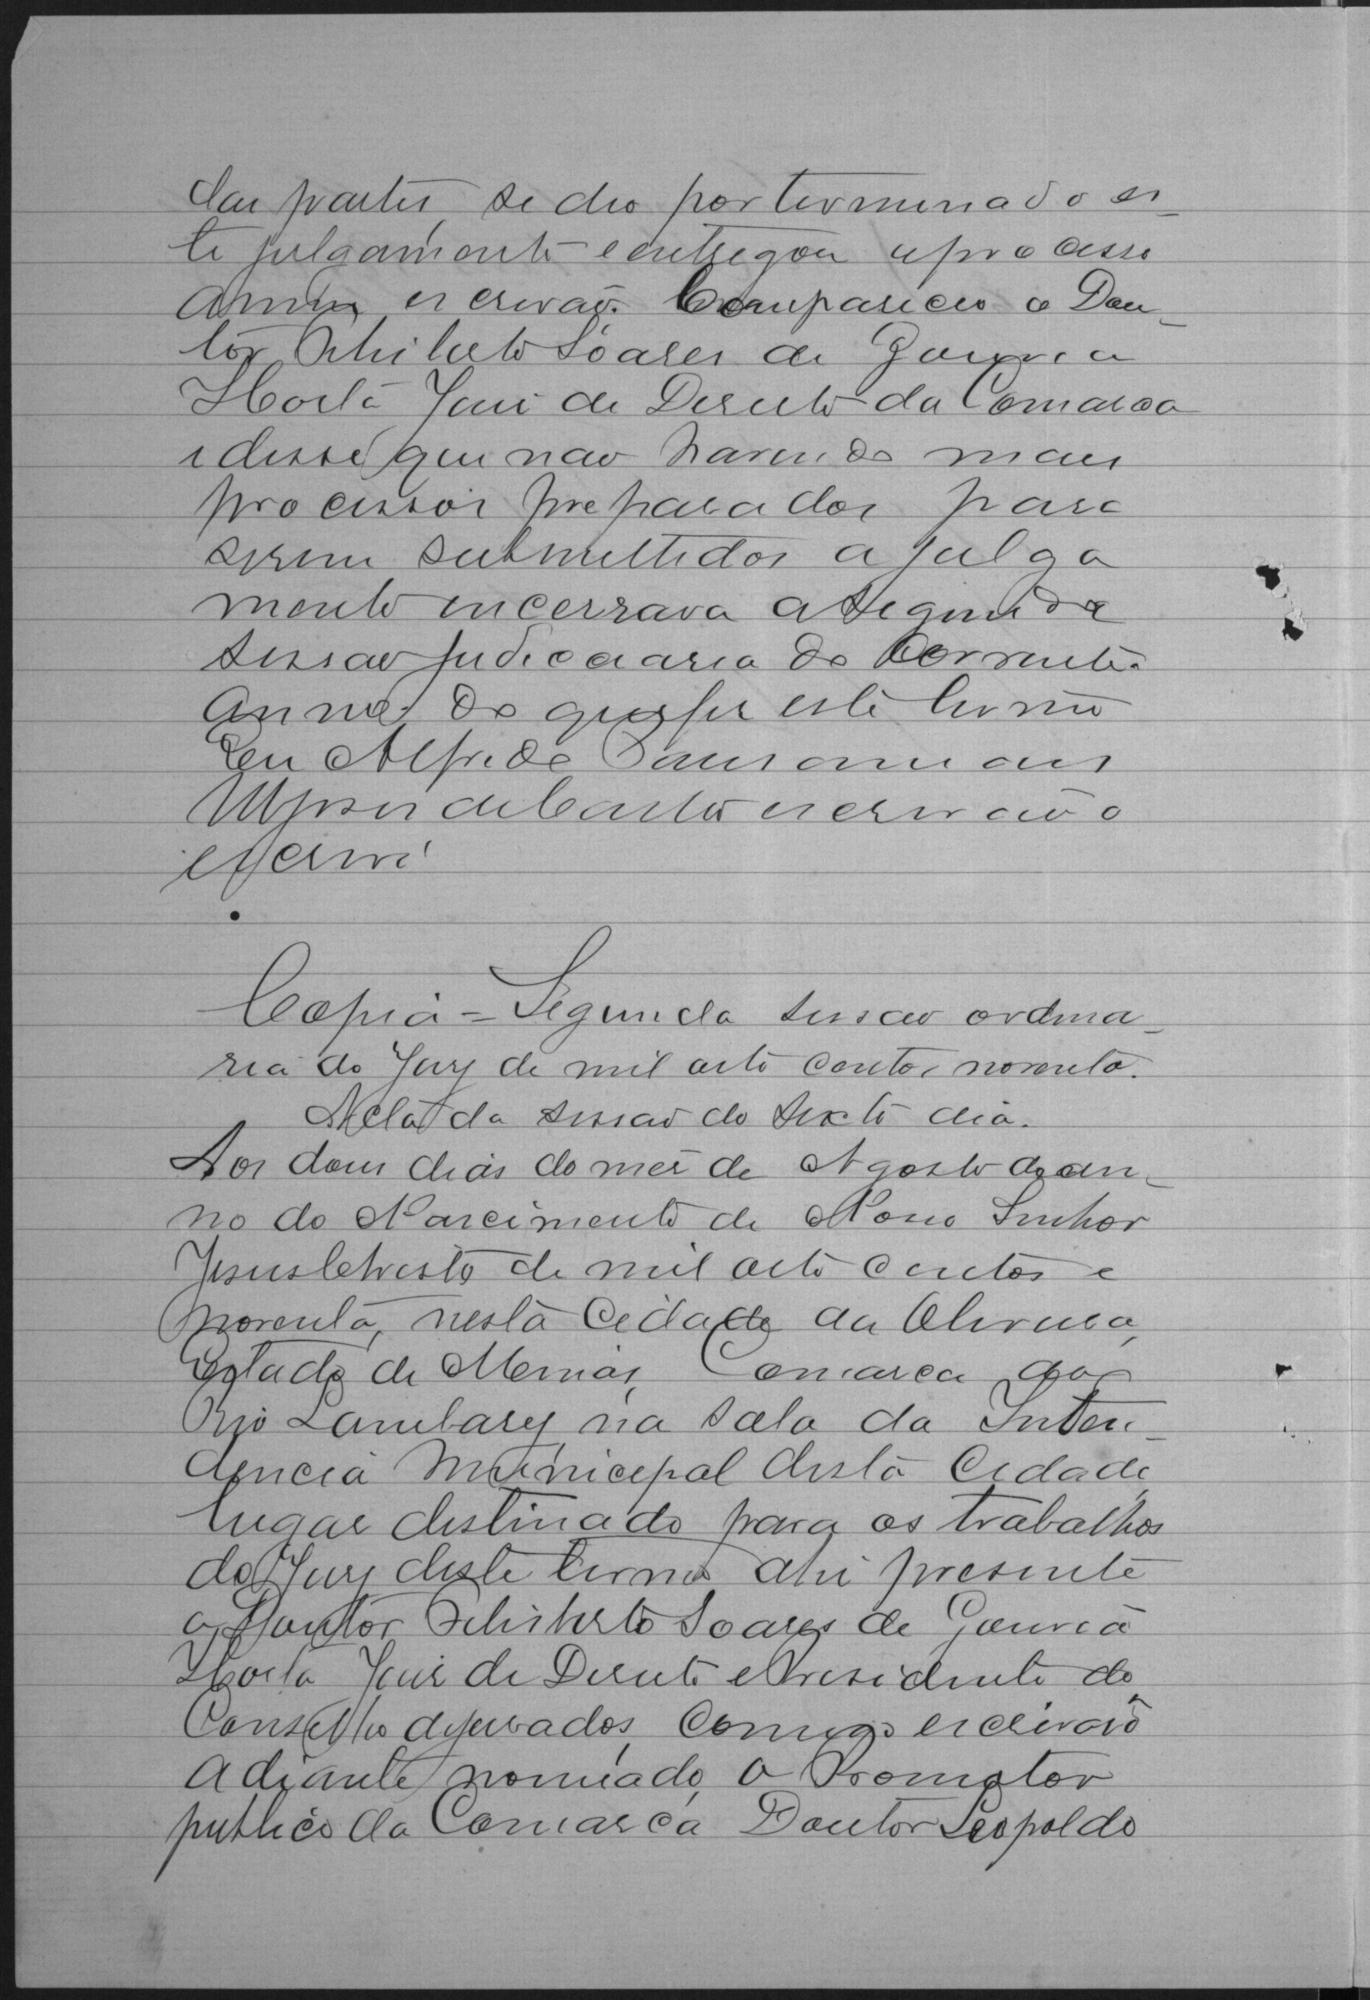 das partes, se deo por terminado es-
te julgamento e entregou o processo
a mim escrivão. Compareceo o Dou-
tor Philiberto Soares de Gouvea
Horta Juis de Dereito da Comarca
e disse que nao havendo mais
processos preparados para
serem submettidos a julga
mento encerrava a segunda
sessao judiciaria do corrente
anno. do que fis este termo
Eu Alfredo
de Castro escrivão o
escrevi
Copia = Segunda sessao ordina-
ria do Jury de mil oito centos noventa.
Acta da sessao do sexto dia.
Aos dous dias do mes de Agosto do an-
no do Nascimento de Nosso Senhor
Jesus Christo de mil oito centos e
noventa, nesta Cidade da Oliveira,
Estado de Minas, Comarca do
Rio Lambary, na sala da Inten-
dencia Municipal desta Cidade,
lugar destinado para os trabalhos
do Jury deste termo ahi presente
o Doutor Philiberto Soares de Gouvea
Horta Juis de Dereito e Presidente do
Conselho de jurados, comigo escrivão
adiante nomeado, o Promotor
publico da Comarca Doutor Leopoldo